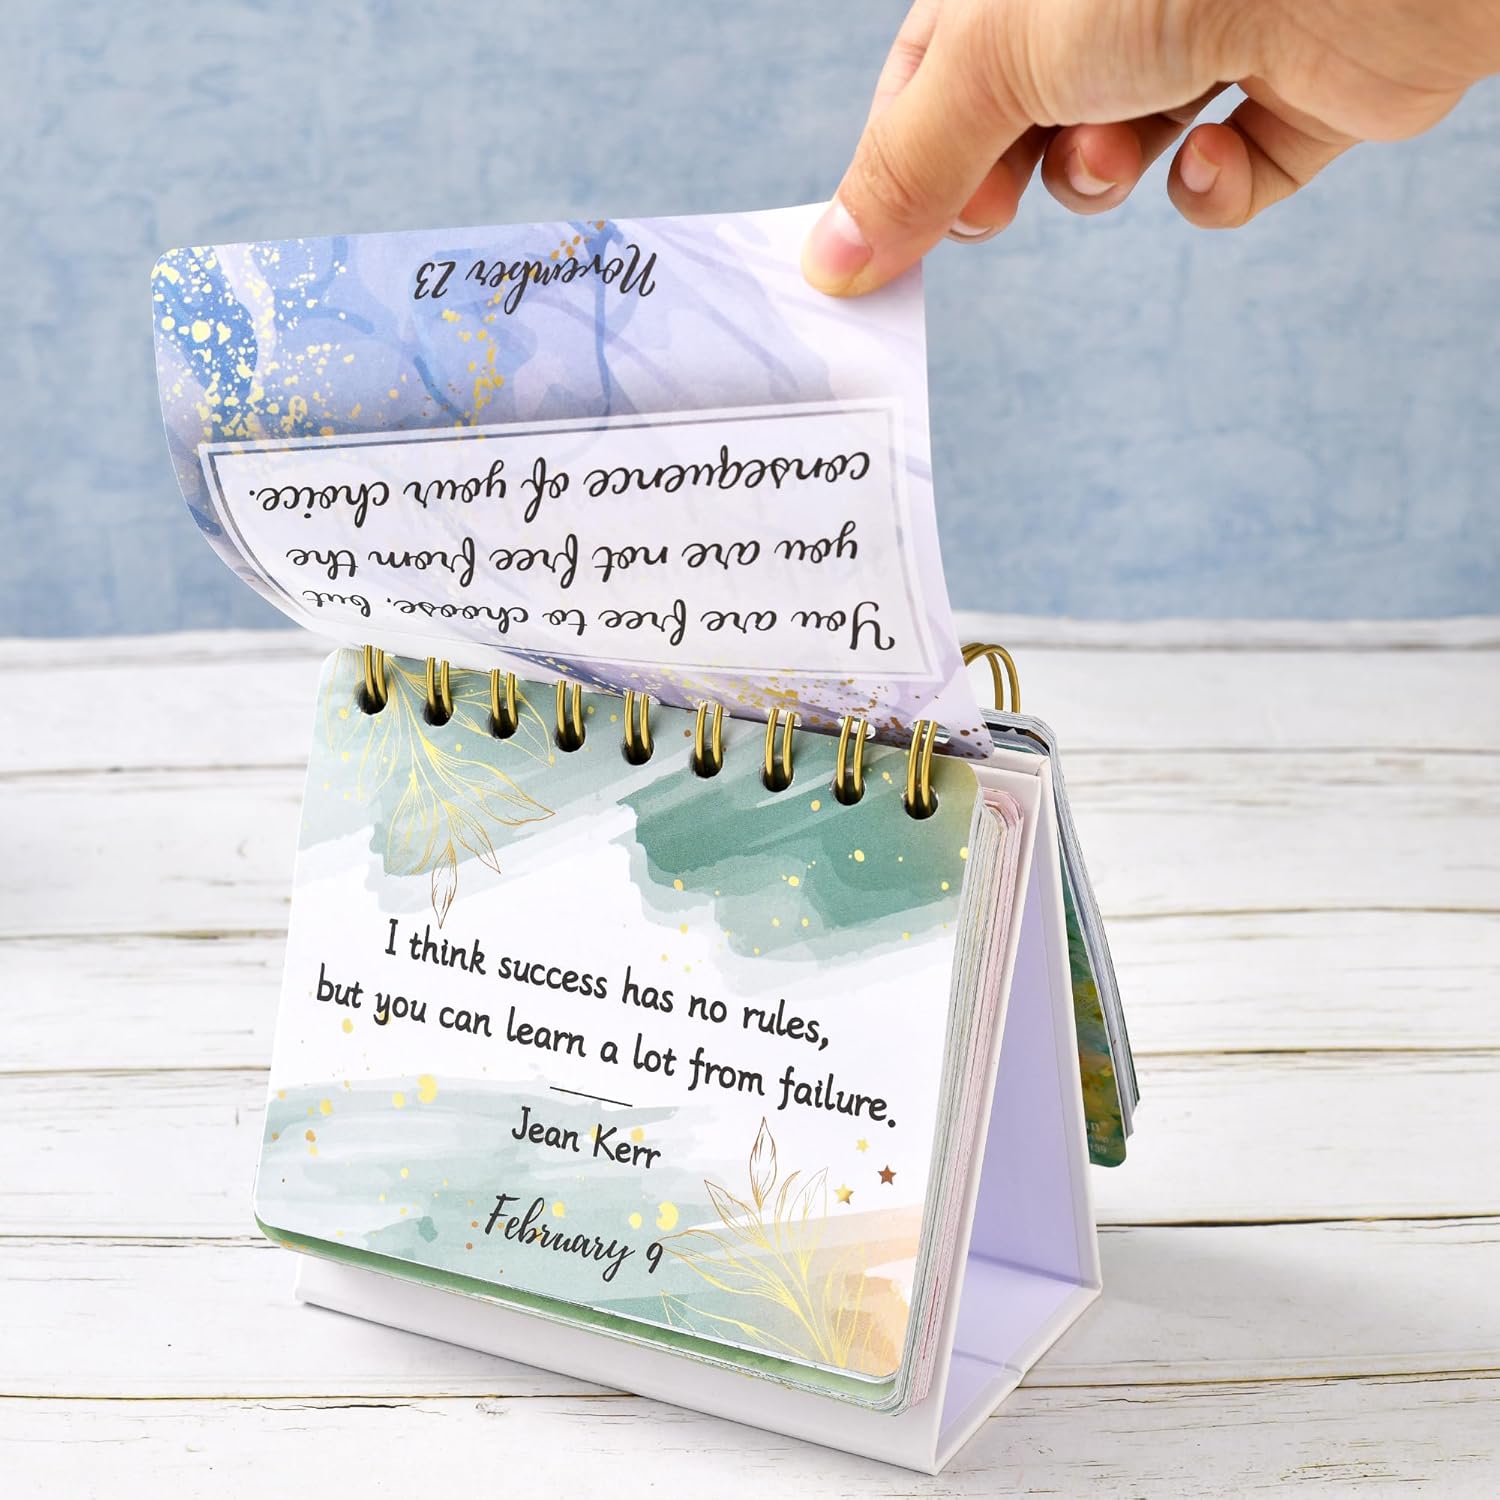 You are free to choose, but
you are not free from the
consequence of your choice.
November 23
I think success has no rules,
but you can learn a lot from failure.
Jean Kerr
February 9